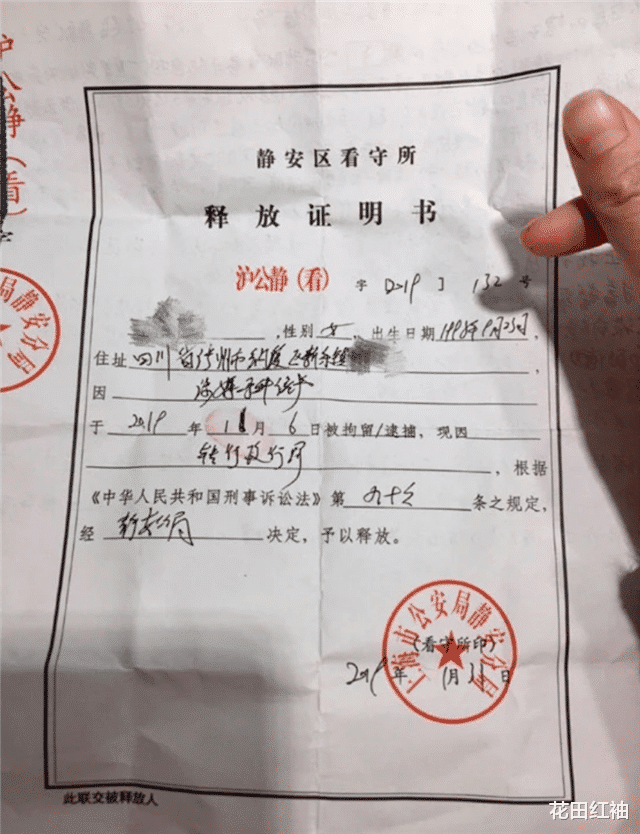 沪公静(看)字
静安区看守所
释放证明书
沪公静(看) 字〔2019〕132号
,性别 女 ,出生日期1998年9月23日,
住址 四川省 ,
因
于 2019 年 11 月 6 日被拘留/逮捕,现因
转行政 ,根据
《中华人民共和国刑事诉讼法》第 九十六 条之规定,
经 静安分局 决定,予以释放。
上海市公安局静安分局
(看守所印)
2019年 月 日
此联交被释放人
花田红袖